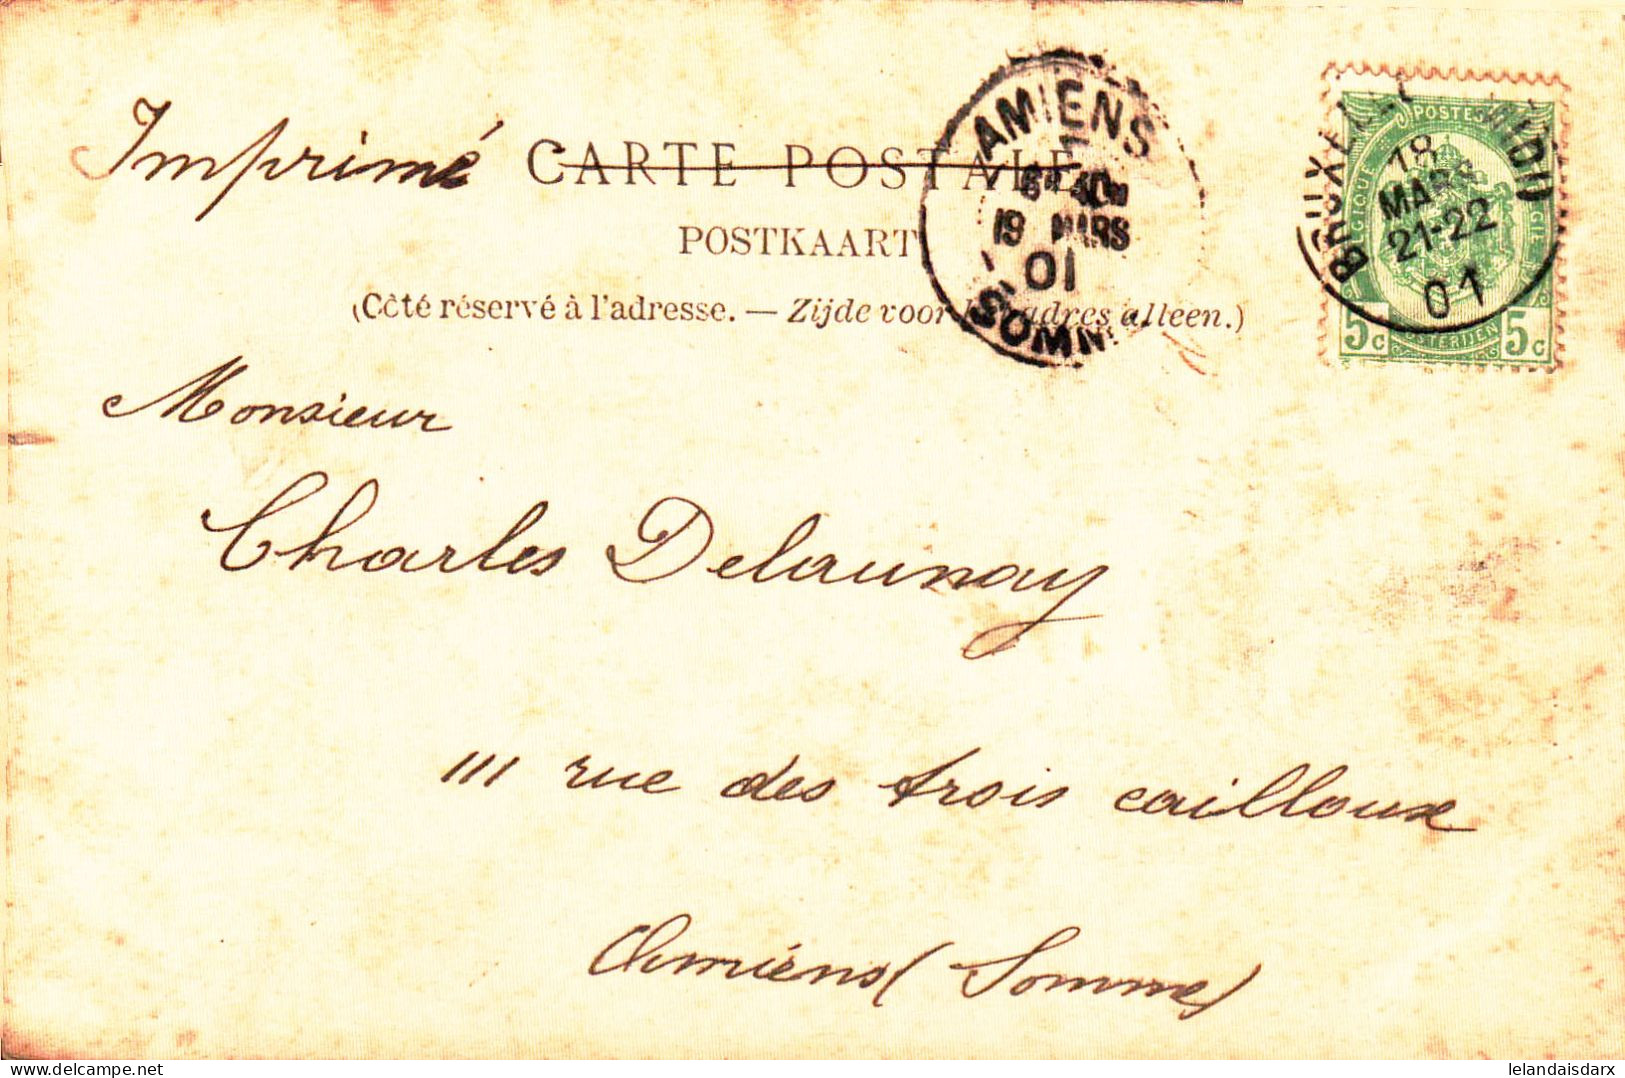 Imprimé CARTE POSTALE
POSTKAART
(Côté réservé à l'adresse. — Zijde voor adres alleen.)
AMIENS
19 MARS
01
SOMME
BRUXELLES MIDI
18
MARS
21-22
01
POSTES
5c 5c
Monsieur
Charles Delaunay
111 rue des trois cailloux
Amiens (Somme)
delcampe.net
lelandaisdarx